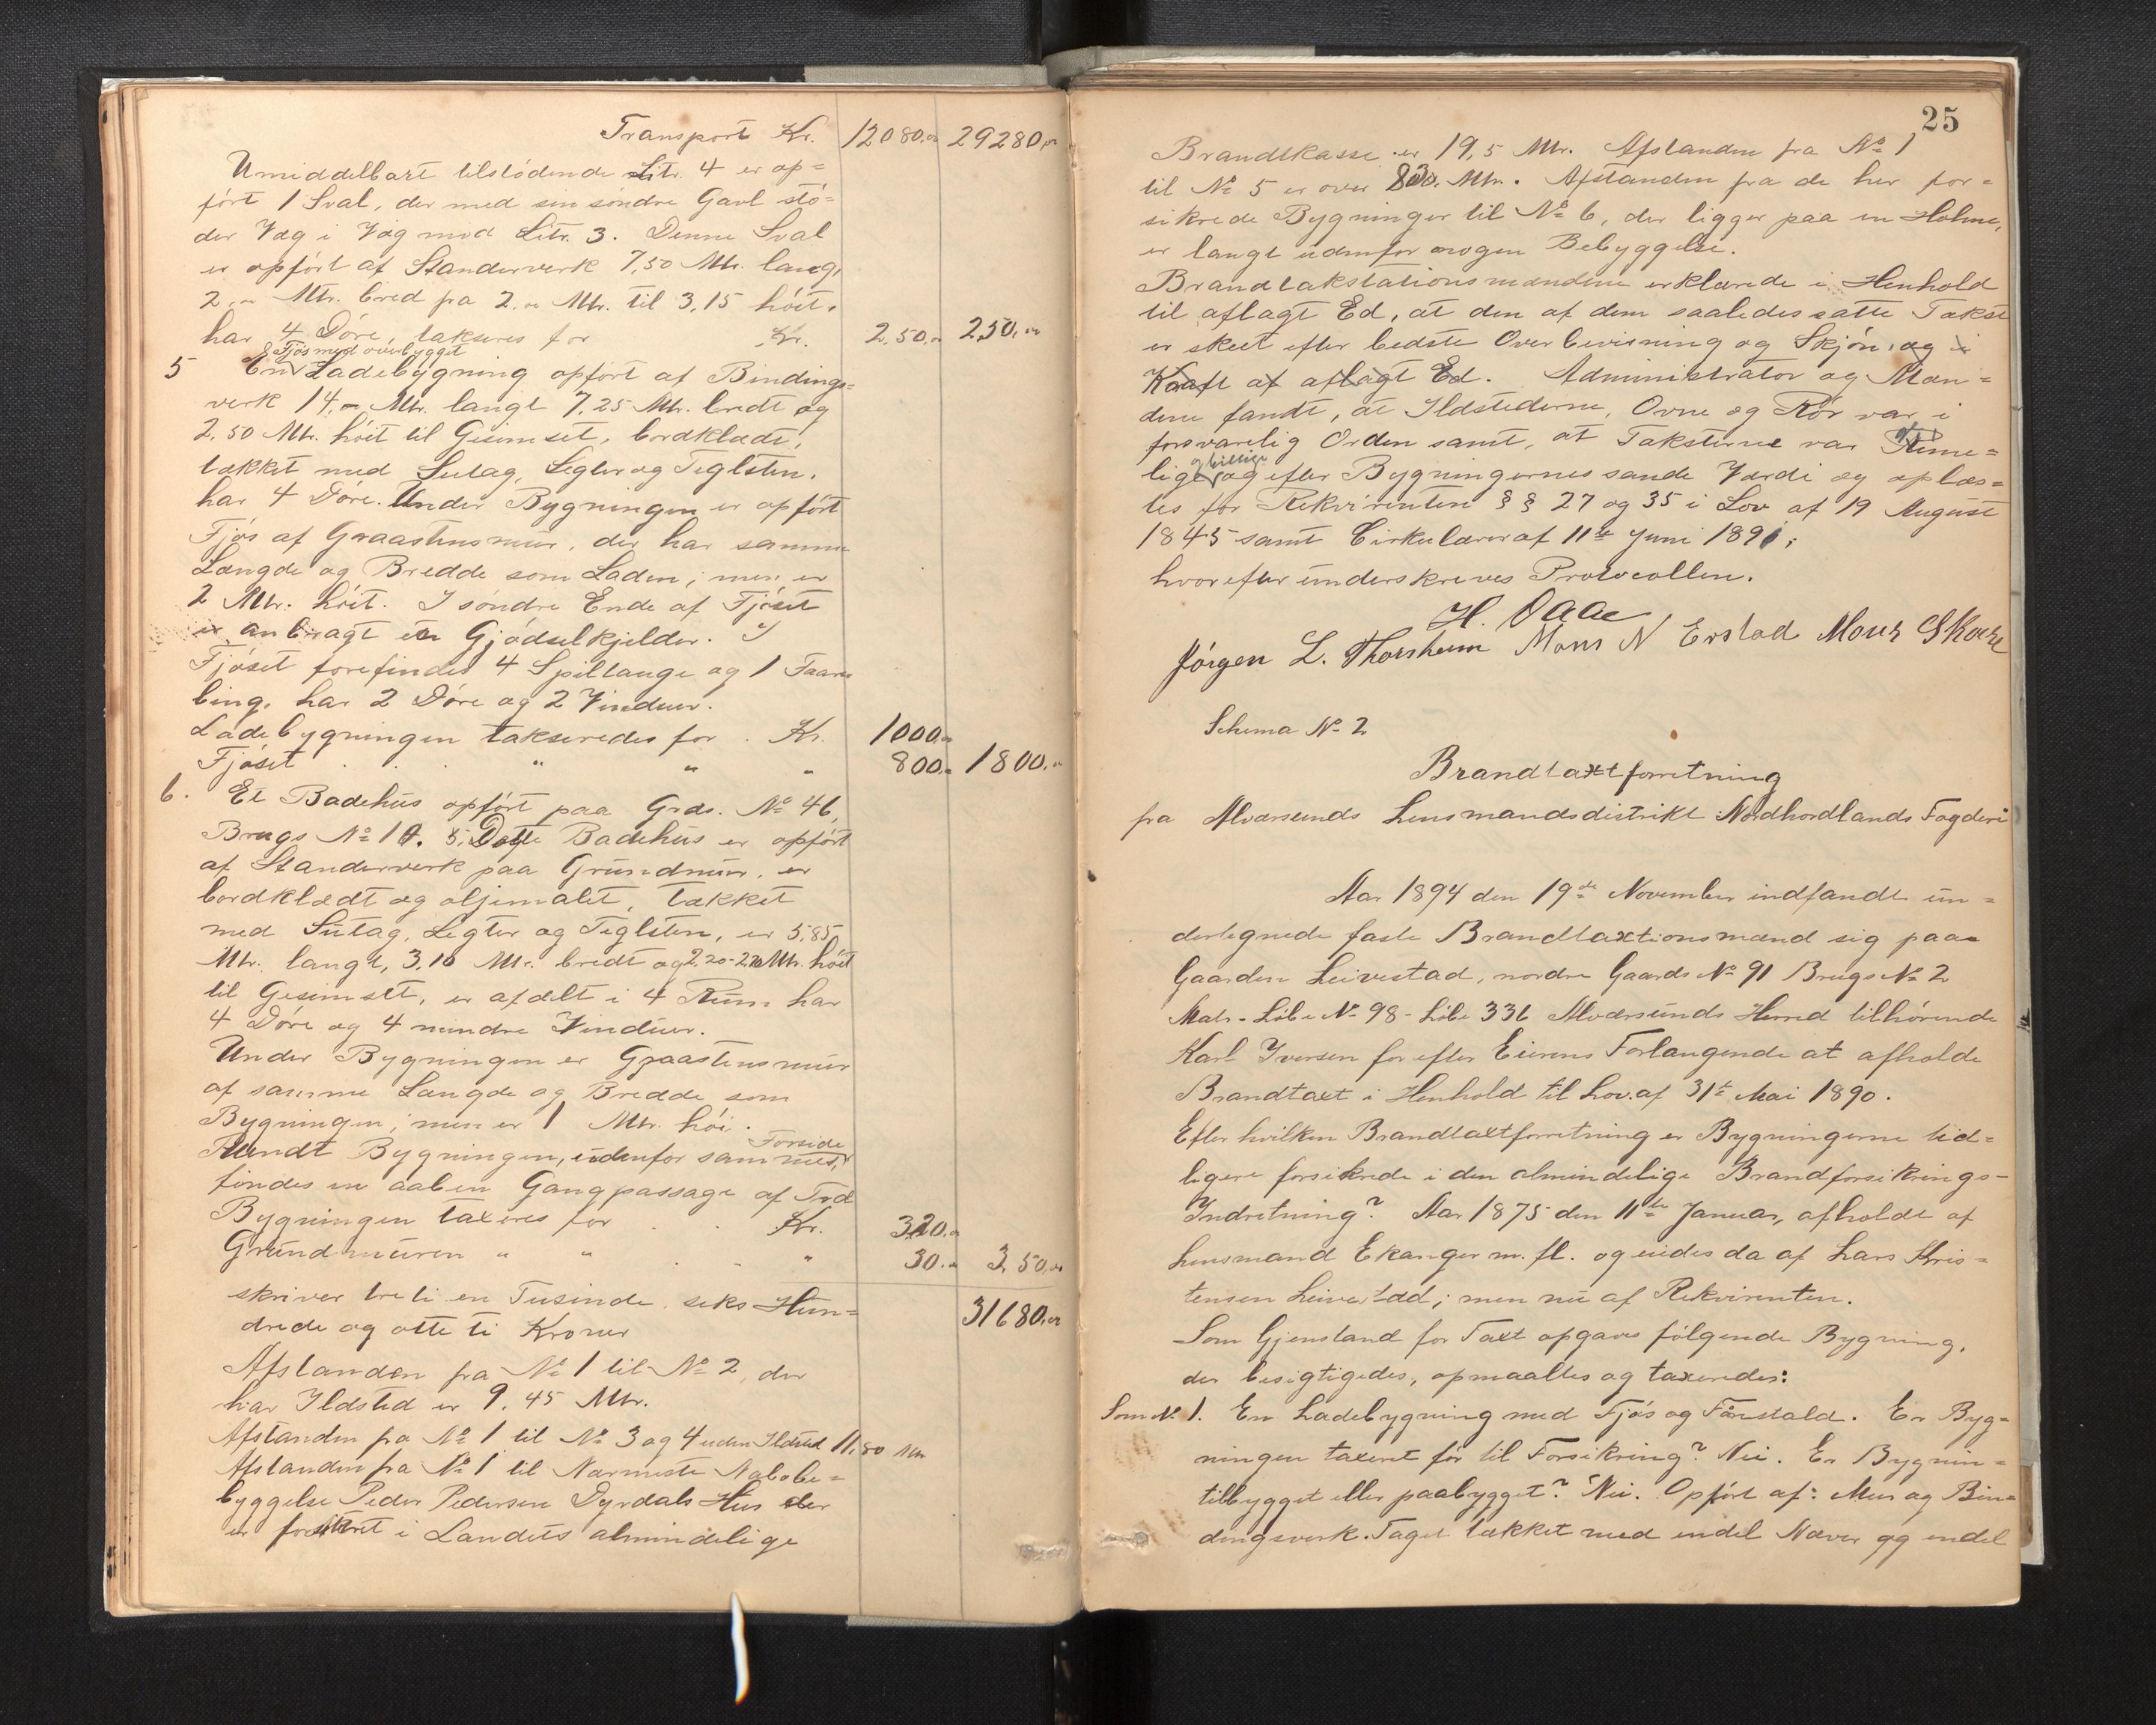 Transport Kr. 12080,00 29280,00
Umiddelbart tilstødende Litr. 4 er op=
ført 1 Sval, der med sin søndre Gavl stø-
der Væg i Væg mod Litr. 3. Denne Sval
er opført af Standerverk 7,50 Mtr. lang,
2,00 Mtr. bred fra 2,00 Mtr. til 3,15 høit.
har 4 Døre, takseres for Kr. 250,00 250,00
& Fjøs med overbygget
5 En Ladebygning opført af Bindings=
verk 14,00 Mtr. langt 7,25 Mtr. bredt og
2,50 Mtr. høit til Gesimset, bordklædt,
tækket med Sutag, Legter og Teglsten.
har 4 Døre. Under Bygningen er opført
Fjøs af Graastensmur, der har samme
Længde og Bredde som Laden; men er
2 Mtr. høit. I søndre Ende af Fjøset
er anbragt en Gjødselkjelder. I
Fjøset forefindes 4 Spiltauge og 1 Faare
bing. har 2 Døre og 2 Vinduer.
Ladebygningen takseredes for . Kr. 1000,00
Fjøset . . . " " " 800,00 1800,00
6. Et Badehus opført paa Grds. No 46,
Brugs No 10. Dette Badehus er opført
af Standerverk paa Grundmur, er
bordklædt og oljemalet, tækket
med Sutag, Legter og Teglsten, er 5,85
Mtr. langt, 3,10 Mtr. bredt og 2,20-2,70 Mtr. høit
til Gesimset, er afdelt i 4 Rum har
4 Døre og 4 mindre Vinduer.
Under Bygningen er Graastensmur
af samme Længde og Bredde som
Bygningen; men er 1 Mtr. høi.
Forside
Rundt Bygningen, udenfor sammes,
findes en aaben Gangpassage af Træ
Bygningen taxeres for . . Kr. 320,00
Grundmuren " " . . " 30,00 350,00
skriver tretien Tusinde seks Hun= 31680,00
drede og otteti Kroner
Afstanden fra No 1 til No 2, der
har Ildsted er 9,45 Mtr.
Afstanden fra No 1 til No 3 og 4 uden Ildsted 11,80 Mtr
Afstanden fra No 1 til Nærmeste Nabobe=
byggelse Peder Pedersen Dyrdals Hus der
er forsikret i Landets almindelige
25
Brandkasse er 19,5 Mtr. Afstanden fra No 1
til No 5 er over 30 Mtr. Afstanden fra de her for=
sikrede Bygninger til No 6, der ligger paa en Holme,
er langt udenfor nogen Bebyggelse.
Brandtakstationsmændene erklærede i Henhold
til aflagt Ed, at den af dem saaledes satte Takst
er skeet efter bedste Overbevisning og Skjøn, og i
Kraft af aflagt Ed. Administrator og Mæn=
dene fandt, at Ildstederne, Ovne og Rør var i
forsvarlig Orden samt, at Taksterne var Rime=
og billige
lige og efter Bygningernes sande Værdi og oplæs=
tes for Rekvirenten §§ 27 og 35 i Lov af 19 August
1845 samt Cirkulærer af 11te Juni 1891;
hvorefter underskreves Protocollen.
H. Daae
Jørgen L. Thorsheim Mons N Erstad Mons Skare
Schema No 2
Brandtaxtforretning
fra Alversunds Lensmandsdistrikt Nordhordlands Fogderi
Aar 1894 den 19de November indfandt un=
dertegnede faste Brandtaxtionsmænd sig paa
Gaarden Leivestad, nordre Gaards No 91 Brugs No 2
Matr. Løbe No 98 - Løbe 336 Alversunds Herred tilhørende
Karl Iversen for efter Eierens Forlangende at afholde
Brandtaxt i Henhold til Lov af 31te Mai 1890.
Efter hvilken Brandtaxtforretning er Bygningerne tid=
ligere forsikrede i den almindelige Brandforsikrings-
Indretning? Aar 1875 den 11te Januar, afholdt af
Lensmand Ekanger m. fl. og eiedes da af Lars Kris=
tensen Leivestad; men nu af Rekvirenten.
Som Gjenstand for Taxt opgaves følgende Bygning,
der besigtigedes, opmaaltes og taxeredes:
Som No 1. En Ladebygning med Fjøs og Færestald. Er Byg=
ningen taxeret før til Forsikring? Nei. Er Bygnin=
tilbygget eller paabygget? Nei. Opført af: Mur og Bin=
dingsverk. Taget tækket med endel Næver og endel